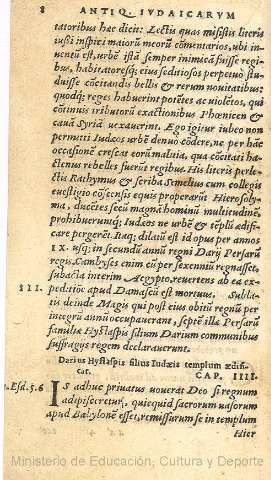 8 ANTIQ. IVDAICARVM
tatoribus hæc dicit: Lectis quas misistis literis
iussi inspici maiorū meorū cōmentarios, ubi in-
uentū est, urbē istā semper inimicā fuisse regi-
bus, habitatoresq; eius seditiosos perpetuò stu-
duisse cōcitandis bellis & rerum nouitatibus:
quodq; reges habuerint potētes ac uiolētos, qui
cōtinuis tributorū exactionibus Phœnicen &
cauā Syriā uexauerint. Ego igitur iubeo non
permitti Iudæos urbē denuò cōdere, ne per hāc
occasionē crescat eorū malitia, qua cōcitati ha-
ctenus rebelles fuerūt regibus. His literis perle-
ctis Rathymus & scriba Semelius cum collegis
euestigio cōscensis equis properarūt Hierosoly-
ma, ducētes secū magnā hominū multitudinē,
prohibuerūtq; Iudæos ne urbē & tēplū ædifi-
care pergerēt. Itaq; dilatū est id opus per annos
IX. usq; in secundū annū regni Darij Persarū
regis. Cambyses enim cū per sexenniū regnasset,
subacta interim Aegypto, reuertens ab ea ex-
III. peditiōe apud Damascū est mortuus. Subla-
tis deinde Magis qui post eius obitū regnū per
integrū annū occupauerant, septē illæ Persarū
familiæ Hystaspis filium Darium communibus
suffragijs regem declarauerunt.
Darius Hystaspis filius Iudæis templum ædifi-
cat. CAP. IIII.
3.Esd.5.6 IS adhuc priuatus uouerat Deo si regnum
adipisceretur, quicquid sacrorum uasorum
apud Babylonē esset, remissurum se in templum
Hier
Ministerio de Educación, Cultura y Deporte